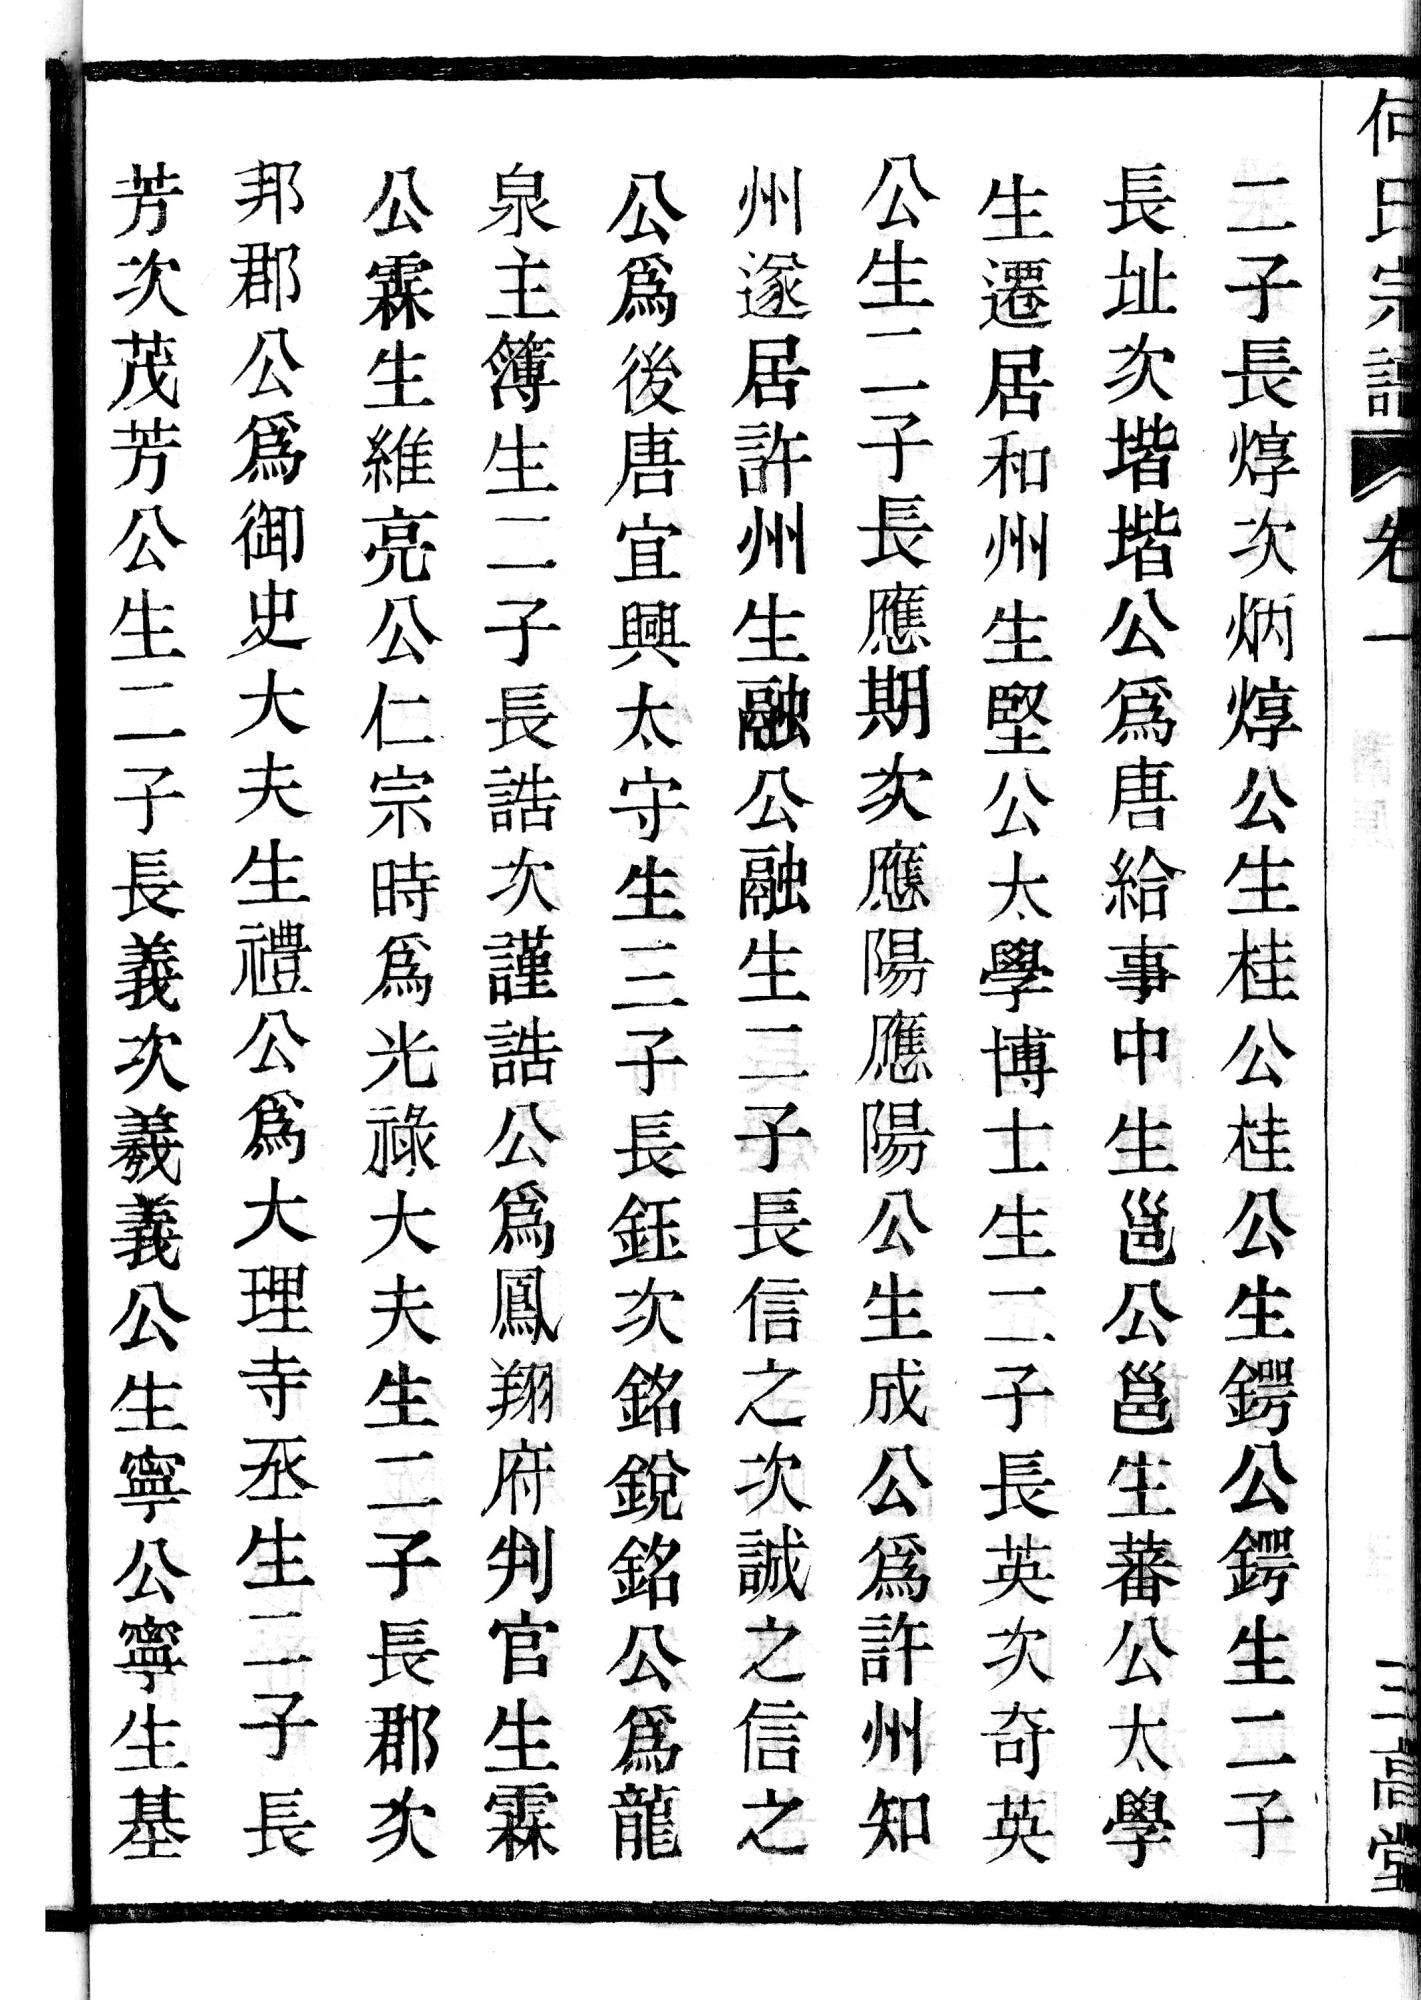 何氏宗譜 卷一 三高堂
二子長焞次炳焞公生桂公桂公生鍔公鍔生二子
長址次堦堦公爲唐給事中生邕公邕生蕃公太學
生遷居和州生堅公太學博士生二子長英次奇英
公生二子長應期次應陽應陽公生成公爲許州知
州遂居許州生融公融生二子長信之次誠之信之
公爲後唐宜興太守生三子長鈺次銘銳銘公爲龍
泉主簿生二子長誥次謹誥公爲鳳翔府判官生霖
公霖生維亮公仁宗時爲光祿大夫生二子長郡次
邦郡公爲御史大夫生禮公爲大理寺丞生二子長
芳次茂芳公生二子長義次羲義公生寧公寧生基